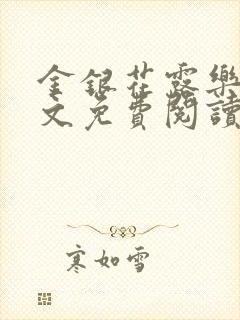 金銀花露樂
文免費閱讀
寒如雪